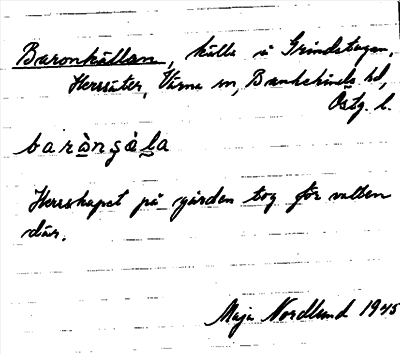 Baronkällan, källa å Grindstugan,
Herrsäter, Värna sn, Bankekinds hd,
Östg. l.
baràngɕà̀la
Herrskapet på gården tog för vatten
där.
Maja Nordlund 1945